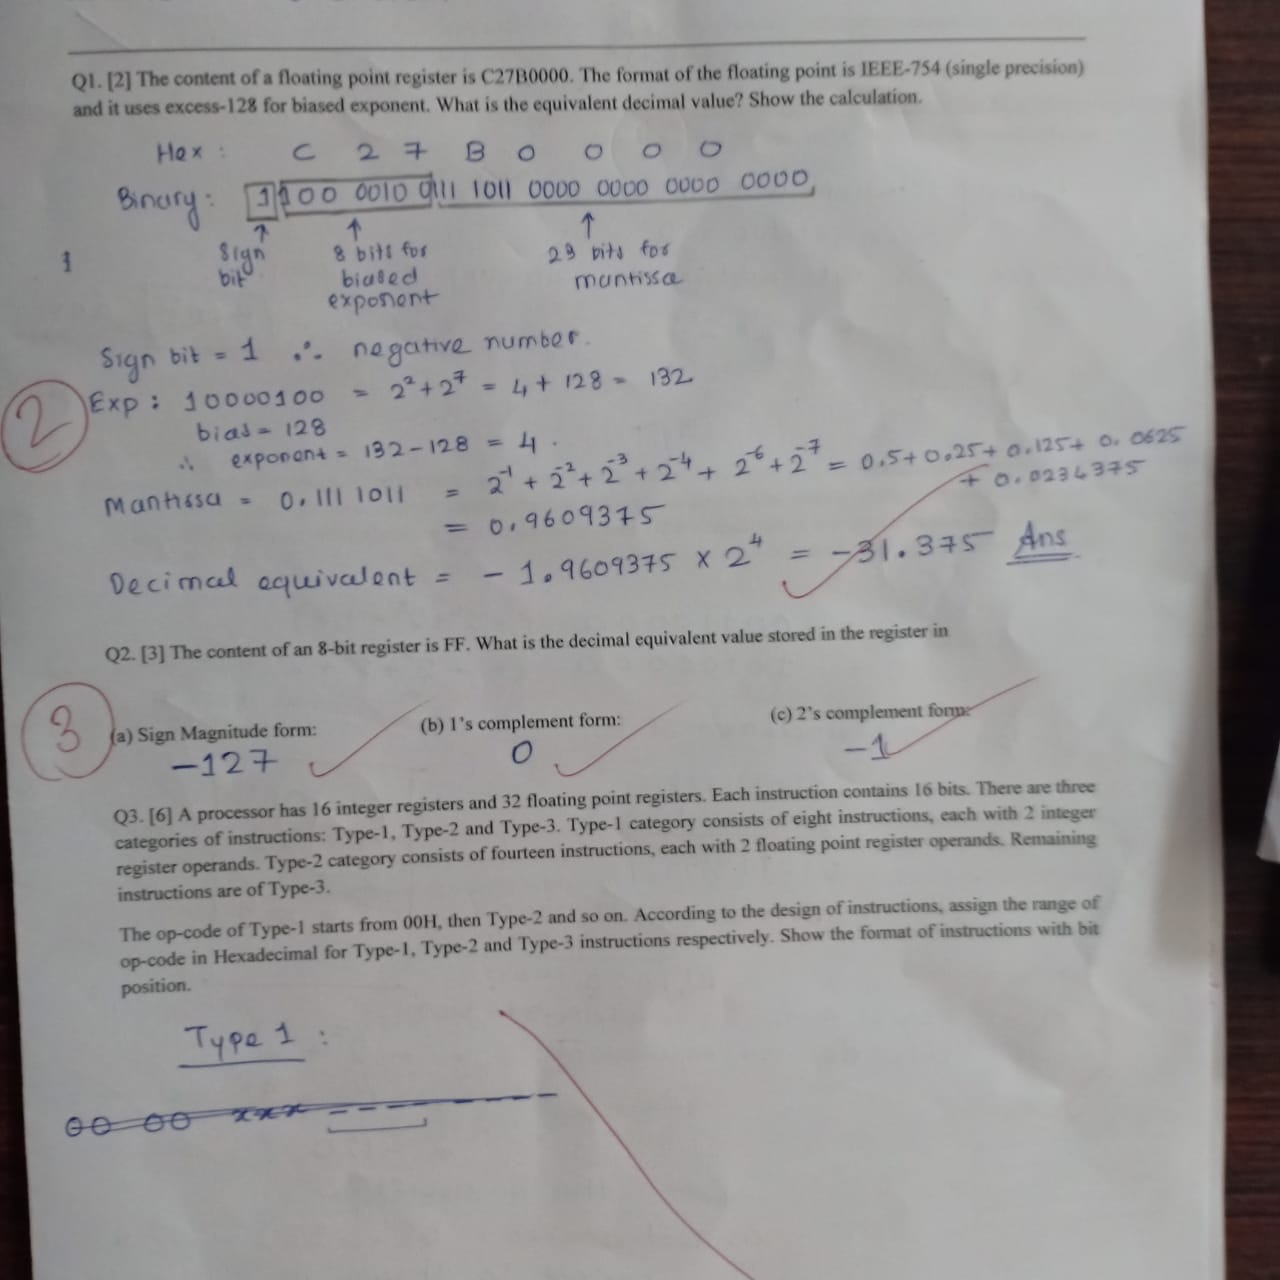 Q1. [2] The content of a floating point register is C27B0000. The format of the floating point is IEEE-754 (single precision)
and it uses excess-128 for biased exponent. What is the equivalent decimal value? Show the calculation.
Hex : C 2 7 B 0 0 0 0
Binary : 1 100 0010 0111 1011 0000 0000 0000 0000
↑ ↑ ↑
1 Sign bit
8 bits for biased exponent
23 bits for mantissa
Sign bit = 1 ∴ negative number.
2
Exp : 10000100 = 2² + 2⁷ = 4 + 128 = 132
bias = 128
∴ exponent = 132 - 128 = 4 .
Mantissa = 0.1111011 = 2⁻¹ + 2⁻² + 2⁻³ + 2⁻⁴ + 2⁻⁶ + 2⁻⁷ = 0.5 + 0.25 + 0.125 + 0.0625
+ 0.0234375
= 0.9609375
Decimal equivalent = - 1.9609375 × 2⁴ = -31.375 Ans
Q2. [3] The content of an 8-bit register is FF. What is the decimal equivalent value stored in the register in
3
(a) Sign Magnitude form: (b) 1's complement form: (c) 2's complement form:
-127 0 -1
Q3. [6] A processor has 16 integer registers and 32 floating point registers. Each instruction contains 16 bits. There are three
categories of instructions: Type-1, Type-2 and Type-3. Type-1 category consists of eight instructions, each with 2 integer
register operands. Type-2 category consists of fourteen instructions, each with 2 floating point register operands. Remaining
instructions are of Type-3.
The op-code of Type-1 starts from 00H, then Type-2 and so on. According to the design of instructions, assign the range of
op-code in Hexadecimal for Type-1, Type-2 and Type-3 instructions respectively. Show the format of instructions with bit
position.
Type 1 :
00 00 xxx